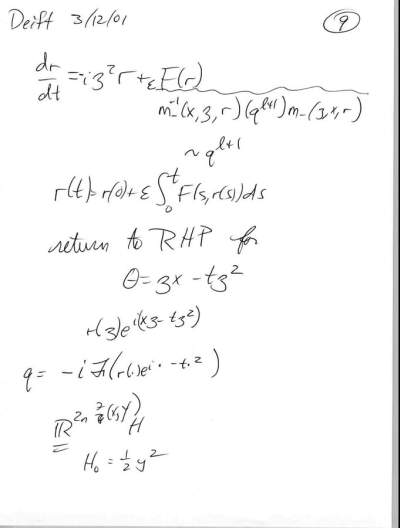 Deift 3/12/01
9
dr/dt = -iz²r + εF(r)
m₋⁻¹(x,z,r)(q^{l+1})m₋(x,r)
~ q^{l+1}
r(t) = r(0) + ε∫₀ᵗ F(s,r(s))ds
return to RHP for
θ = zx - tz²
r(z)e^{i(xz - tz²)}
q = -i (r(.)e^{i· - t·²})
ℝ²ⁿ (x,y) H
H₀ = ½y²